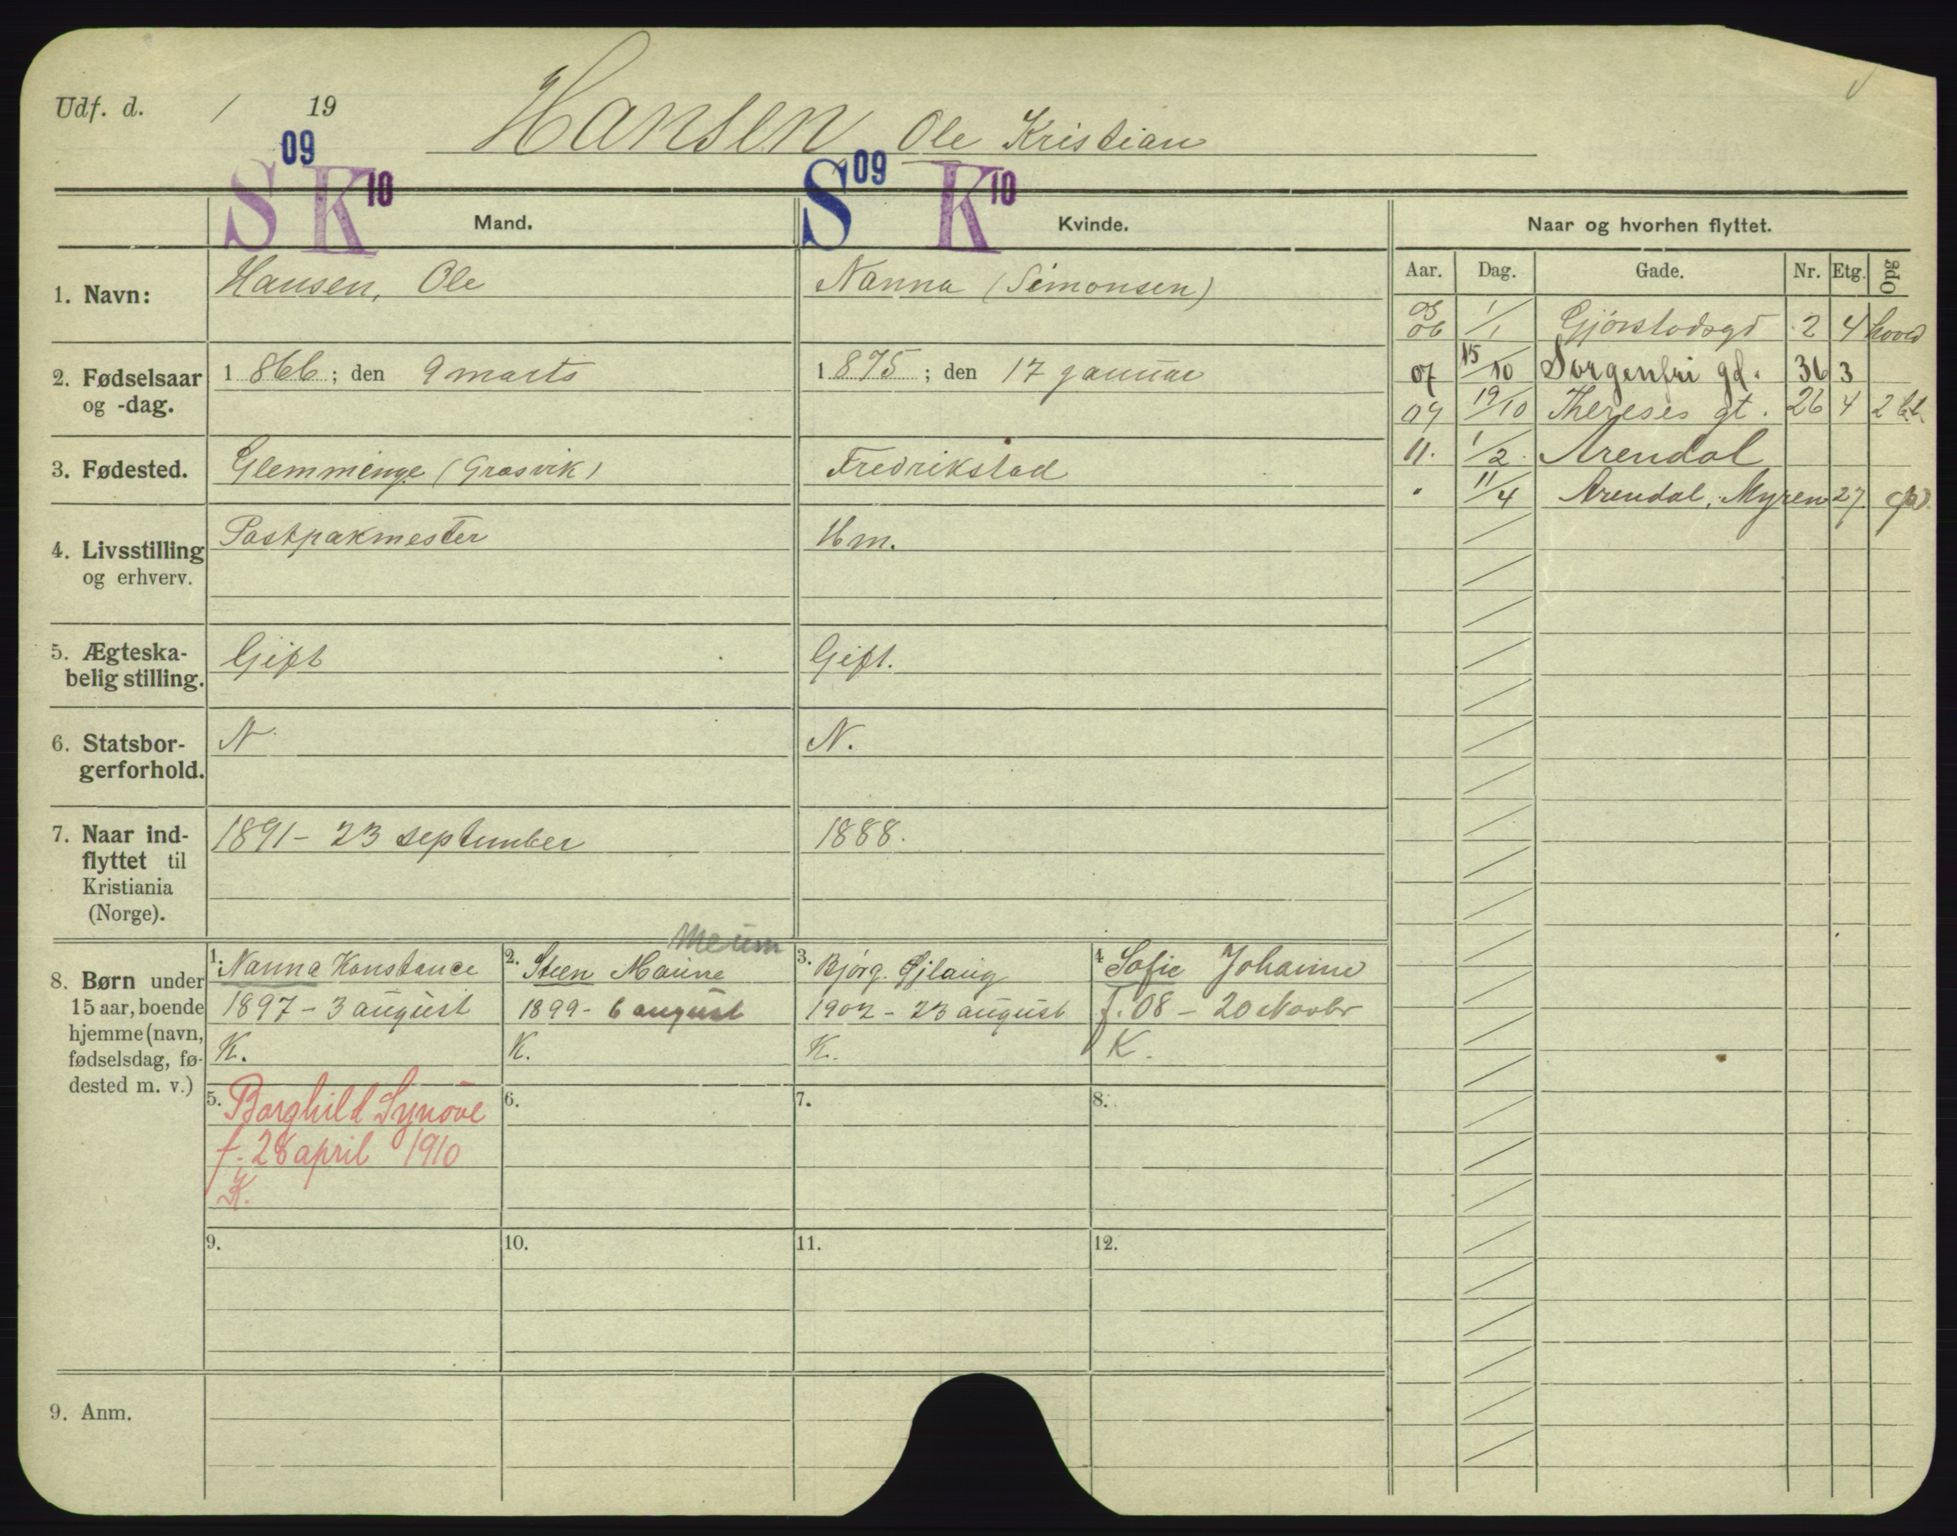 Udf. d. / 19
Hansen Ole Kristian
S 09 K 10
S 09 K 10
Mand.
Kvinde.
Naar og hvorhen flyttet.
Aar. Dag. Gade. Nr. Etg. Opg
1. Navn:
Hansen, Ole
Nanna (Simonsen)
2. Fødselsaar og -dag.
1 866 ; den 9 marts
1 875 ; den 17 januar
3. Fødested.
Glemminge (Grasvik)
Fredrikstad
4. Livsstilling og erhverv.
Postpakmester
Hm.
5. Ægteska-
belig stilling.
Gift
Gift.
6. Statsbor-
gerforhold.
N
N.
7. Naar ind-
flyttet til
Kristiania
(Norge).
1891 - 23 september
1888.
8. Børn under
15 aar, boende
hjemme (navn,
fødselsdag, fø-
dested m. v.)
1. Nanna Konstance
1897 - 3 august
K.
2. Steen
1899 - 6 august
K.
3. Bjørg
1902 - 23 august
K.
4 Sofie Johanne
f. 08 - 20 Novbr
K.
5. Borghild Synøve
f. 28 april 1910
K.
6.
7.
8.
9.
10.
11.
12.
9. Anm.
06 1/1 2 4
07 15/10 Sorgenfri gd. 36 3
09 19/10 Thereses gt. 26 4
11. 1/2 Arendal
" 11/4 Arendal, Myren 27